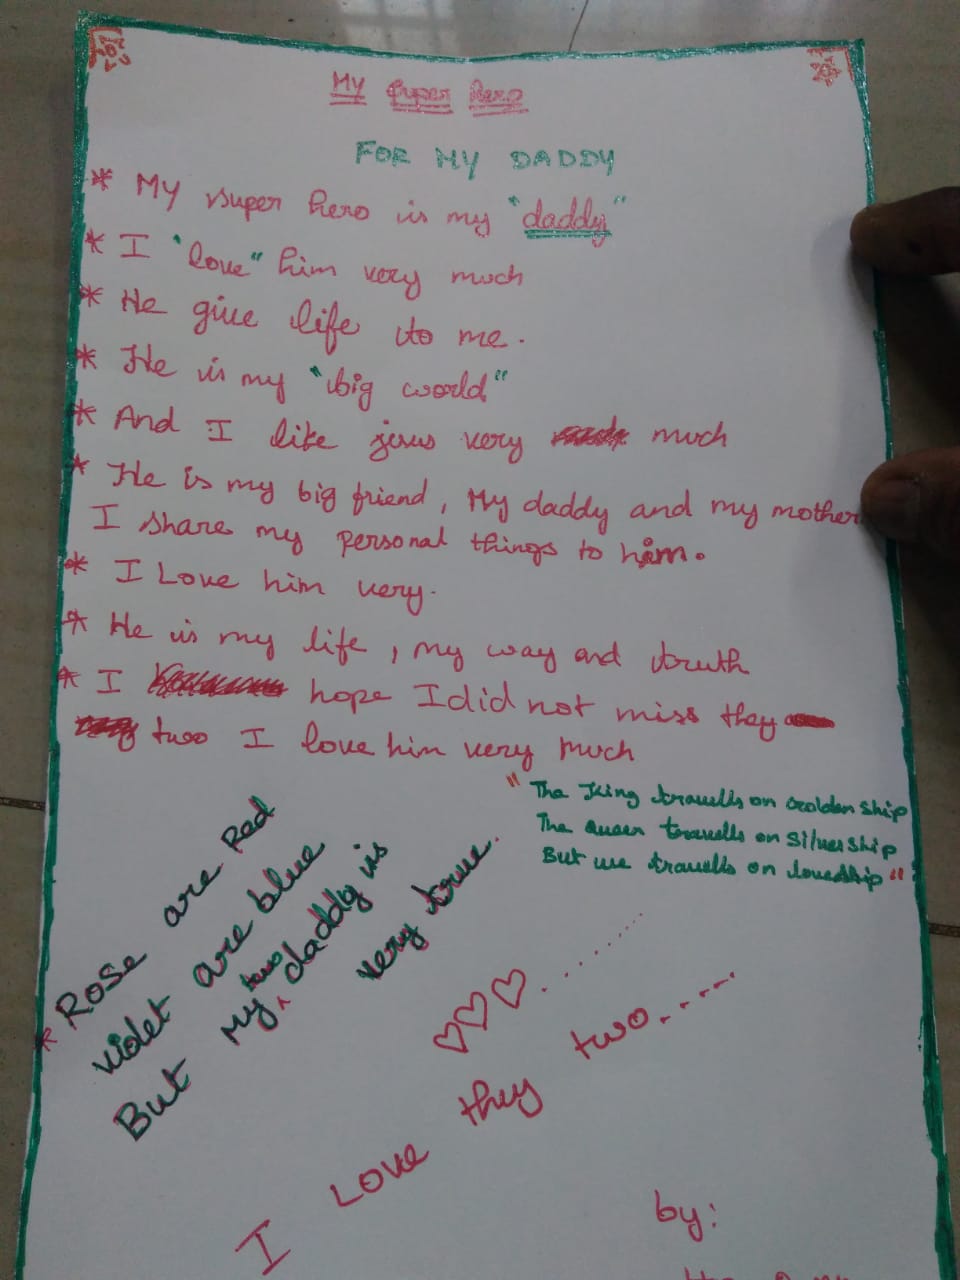 My Super Hero
FOR MY DADDY
* My super hero is my "daddy"
* I "love" him very much
* He give life to me.
* He is my "big world"
* And I like jesus very much
* He is my big friend, My daddy and my mother
I share my personal things to him.
* I Love him very.
* He is my life, my way and truth
* I hope I did not miss they
two I love him very much
"The King travells on Golden ship
The Queen travells on Silver ship
But we travells on loveship"
* Rose are Red
violet are blue
But my two daddy is
very true.
I Love they two....
by: